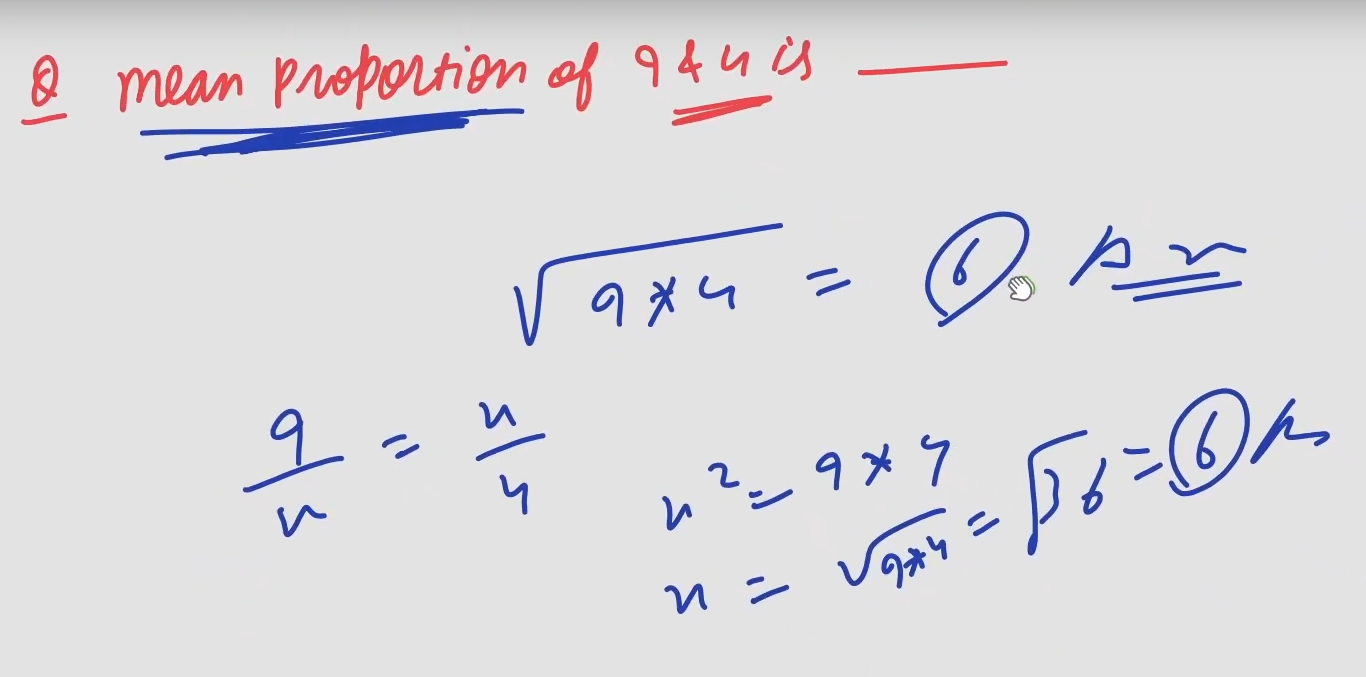 Q mean proportion of 9 & 4 is ____
√9*4 = 6 Ans
9/x = x/4
x² = 9*4
x = √9*4 = √36 = 6 A